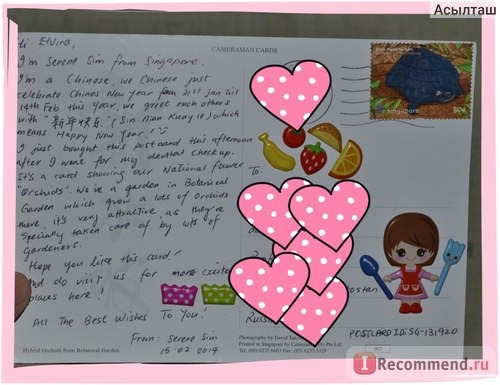 Асылташ
Hi Elvira,
I'm Serene Sim from Singapore.
I'm a Chinese, we Chinese just
celebrate Chines New year from 31st jan till
14th Feb this year, we greet each others
with "新年快乐" (Sin Nian Kuay le) which
means Happy New Year!
I just bought this postcard this afternoon
after I went for my dental checkup.
It's a card showing our National flower
"Orchids". We've a garden in Botanical
Garden which grow a lot of orchids
there, it's very attractive as they're
specially taken care of by lots of
gardeners.
Hope you like this card!
And do visit us for more
places here!
All The Best Wishes To You!
From: Serene Sim
15-02-2014
Hybrid Orchids from Botanical Garden.
CAMERAMAN CARDS
singapore
50c
To:
Russia
POSTCARD ID: SG-131920
Photography by David Tan
Printed in Singapore by Cameraman (S) Pte Ltd
Tel: (65) 6235 6603 Fax: (65) 6235 5329
IRecommend.ru